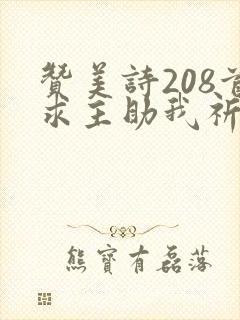 贊美詩208首
求主助我祈
熊寶有磊落